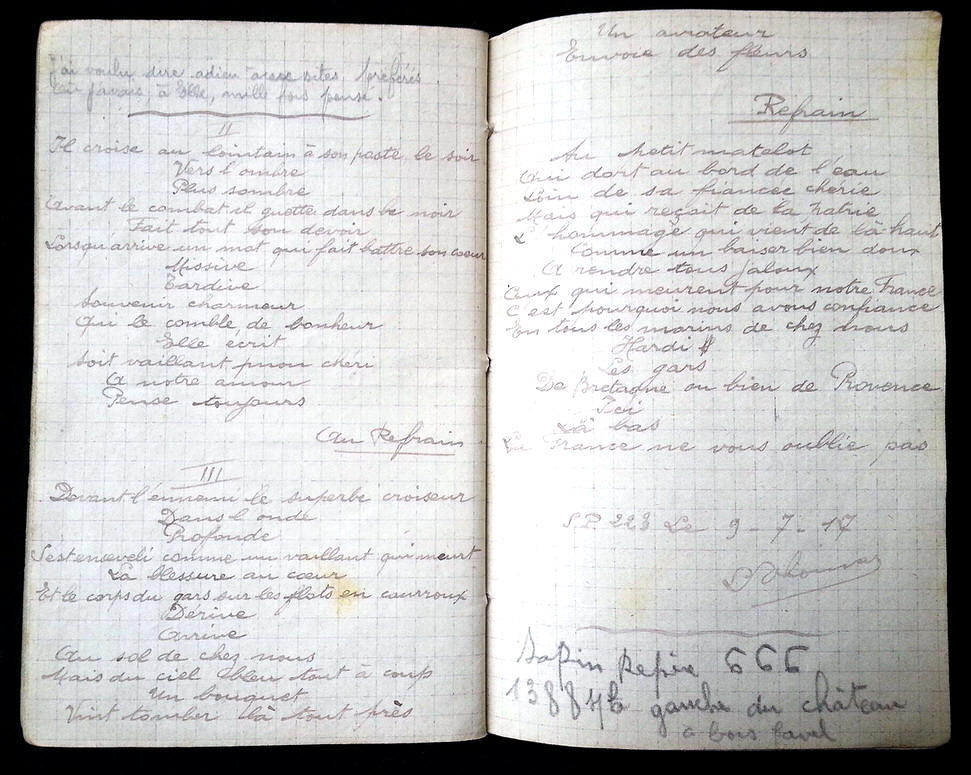 J'ai voulu dire adieu aux sites préférés
à Elle, mille fois pensé.
II
Il croise au lointain à son poste le soir
Vers l'ombre
Plus sombre
Avant le combat il guette dans le noir
Fait tout son devoir
Lorsqu'arrive un mot qui fait battre son coeur
Missive
Tardive
Souvenir charmeur
Qui le comble de bonheur
Elle écrit
Soit vaillant mon chéri
A notre amour
Pense toujours
Au Refrain
III
Devant l'ennemi le superbe croiseur
Dans l'onde
Profonde
S'est enseveli comme un vaillant qui meurt
La blessure au coeur
Et le corps du gars sur les flots en courroux
Dérive
Arrive
Au sol de chez nous
Mais du ciel bleu tout à coup
Un bouquet
Vint tomber là tout près
Un aviateur
Envoie des fleurs
Refrain
Au petit matelot
Qui dort au bord de l'eau
Loin de sa fiancée chérie
Mais qui reçoit de la Patrie
L'hommage qui vient de là haut
Comme un baiser bien doux
A rendre tous jaloux
Ceux qui meurent pour notre France
C'est pourquoi nous avons confiance
En tous les marins de chez nous
Hardi
Les gars
De Bretagne ou bien de Provence
Ici
Là bas
La France ne vous oublie pas
S.P. 223 Le 9-7-17
Sapin repère 666
gauche du château
à bois